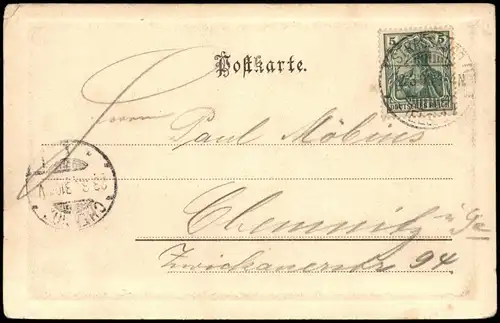 Postkarte.
5 5
DEUTSCHES REICH
Herrn
Paul Möbius
Chemnitz i/Sa
Zwickauerstr 94.